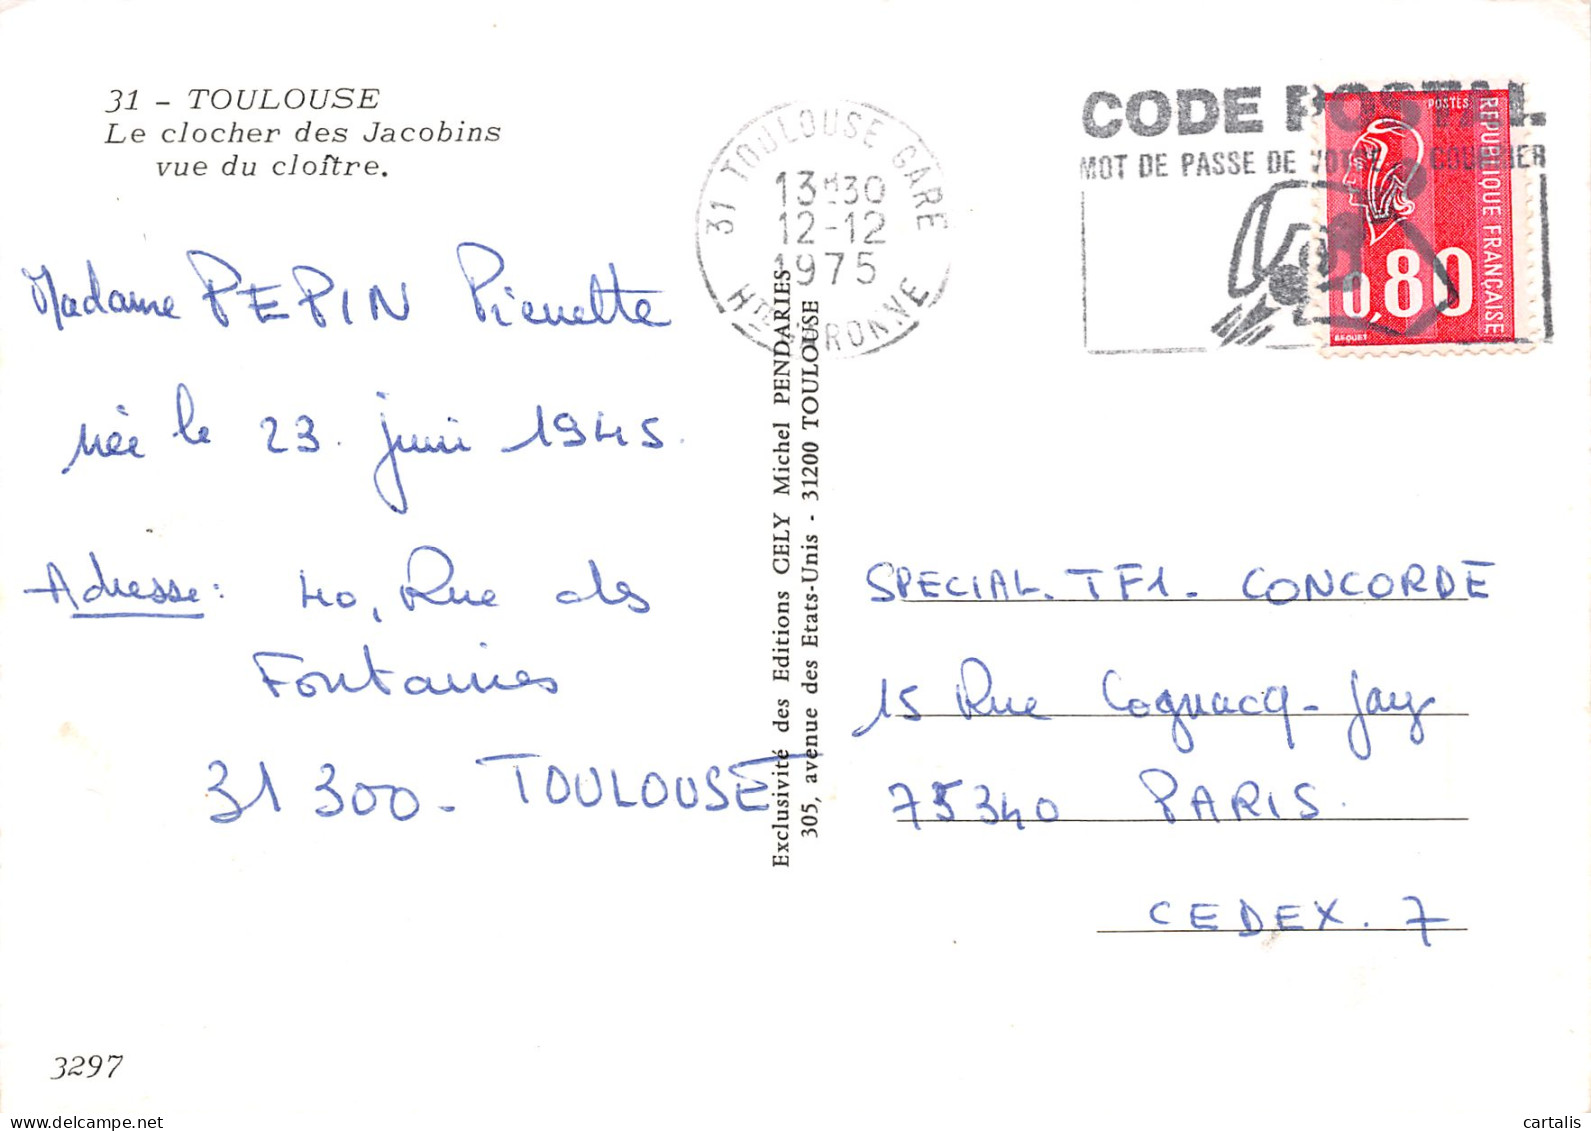 31 - TOULOUSE
Le clocher des Jacobins
vue du cloître.
31 TOULOUSE GARE
13H30
12-12
1975
Hte GARONNE
CODE POSTAL
MOT DE PASSE DE VOTRE COURRIER
POSTES
REPUBLIQUE FRANÇAISE
0,80
BEQUET
Madame PEPIN Pierrette
née le 23 juin 1945.
Adresse : 40, Rue des
Fontaines
31 300 - TOULOUSE
Exclusivité des Editions CELY Michel PENDARIES
305, avenue des Etats-Unis - 31200 TOULOUSE
SPECIAL. TF1 - CONCORDE
15 Rue Cognacq-Jay
75340 PARIS.
CEDEX. 7
3297
www.delcampe.net
cartalis